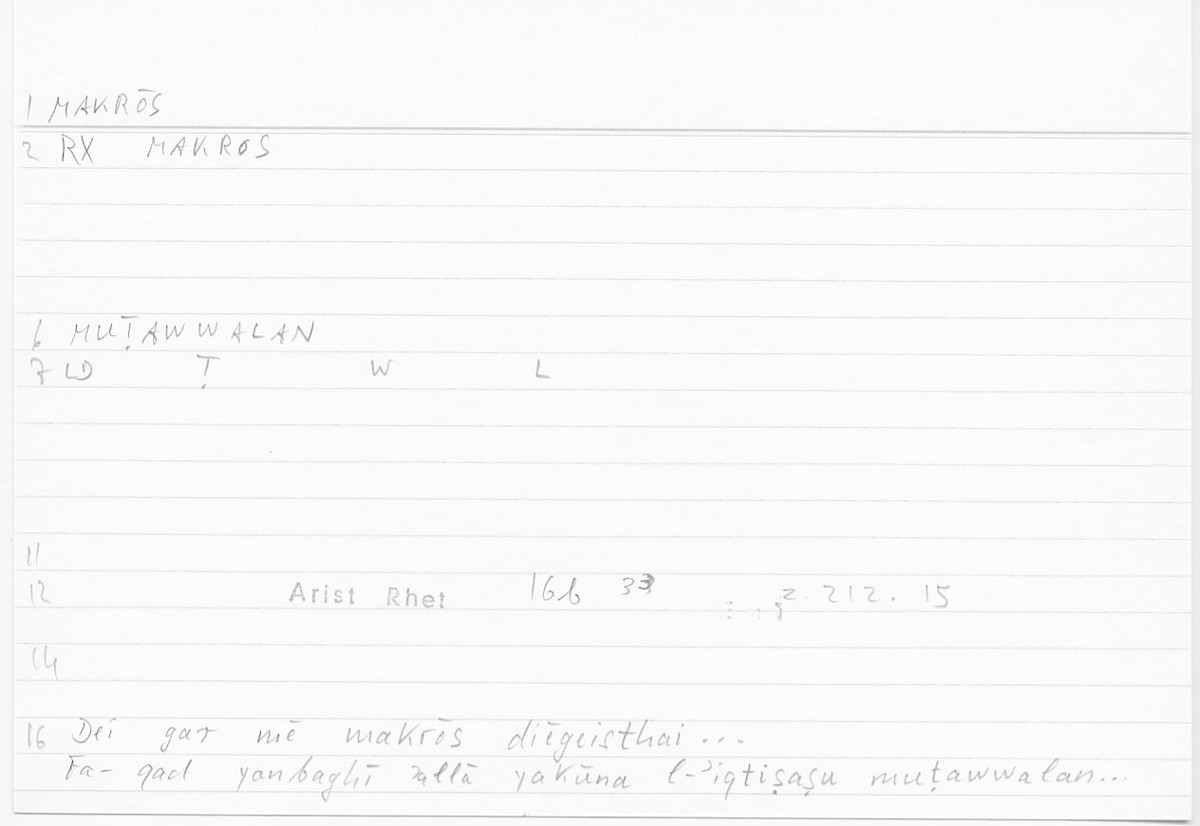 1 MAKRŌS
2 RX MAKROS
6 MUṬAWWALAN
7 LD Ṭ W L
11
12 Arist Rhet 16b 33 z. 212. 15
14
16 Dei gar mē makrōs diēgeisthai...
Fa-qad yanbaghī ʾallā yakūna l-ʾiqtiṣaṣu muṭawwalan...